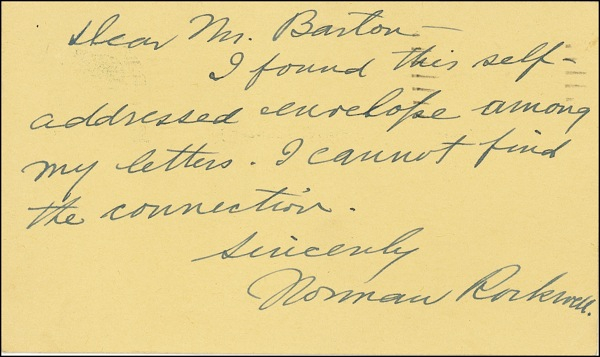 Dear Mr. Barton
I found this self-
addressed envelope among
my letters. I cannot find
the connection.
Sincerely
Norman Rockwell.